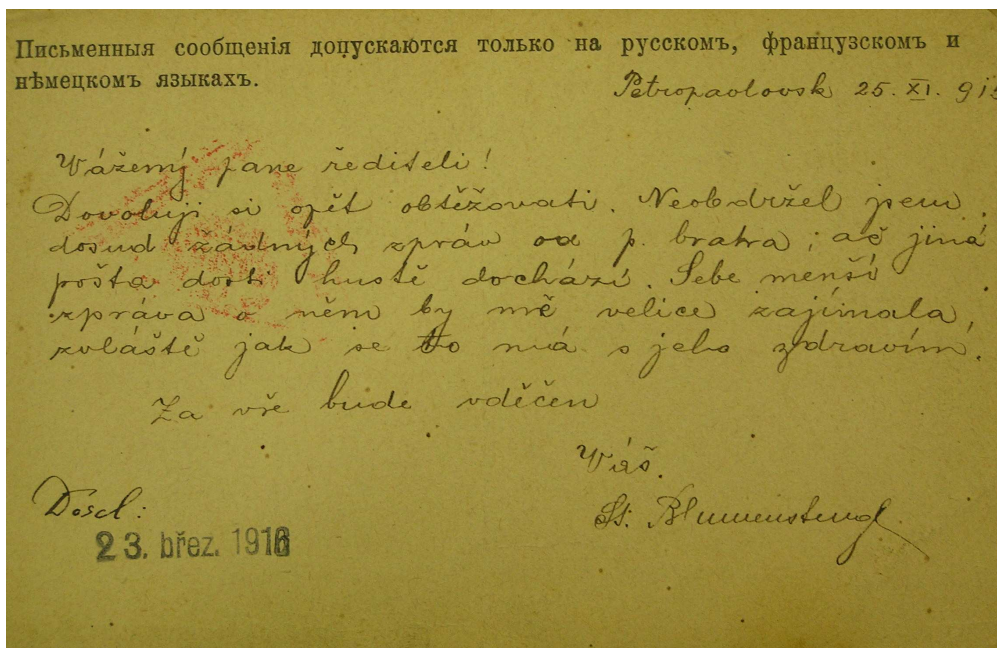 Письменныя сообщенія допускаются только на русскомъ, французскомъ и
нѣмецкомъ языкахъ.
Petropavlovsk 25. XI. 915
Vážený pane řediteli!
Dovoluji si opět obtěžovati. Neobdržel jsem
dosud žádných zpráv od p. bratra; ač jiná
pošta dosti hustě dochází. Sebe menší
zpráva o něm by mě velice zajímala,
zvláště jak se to má s jeho zdravím.
Za vše bude vděčen
Váš.
St. Blumenstengl.
Došel:
23. břez. 1916